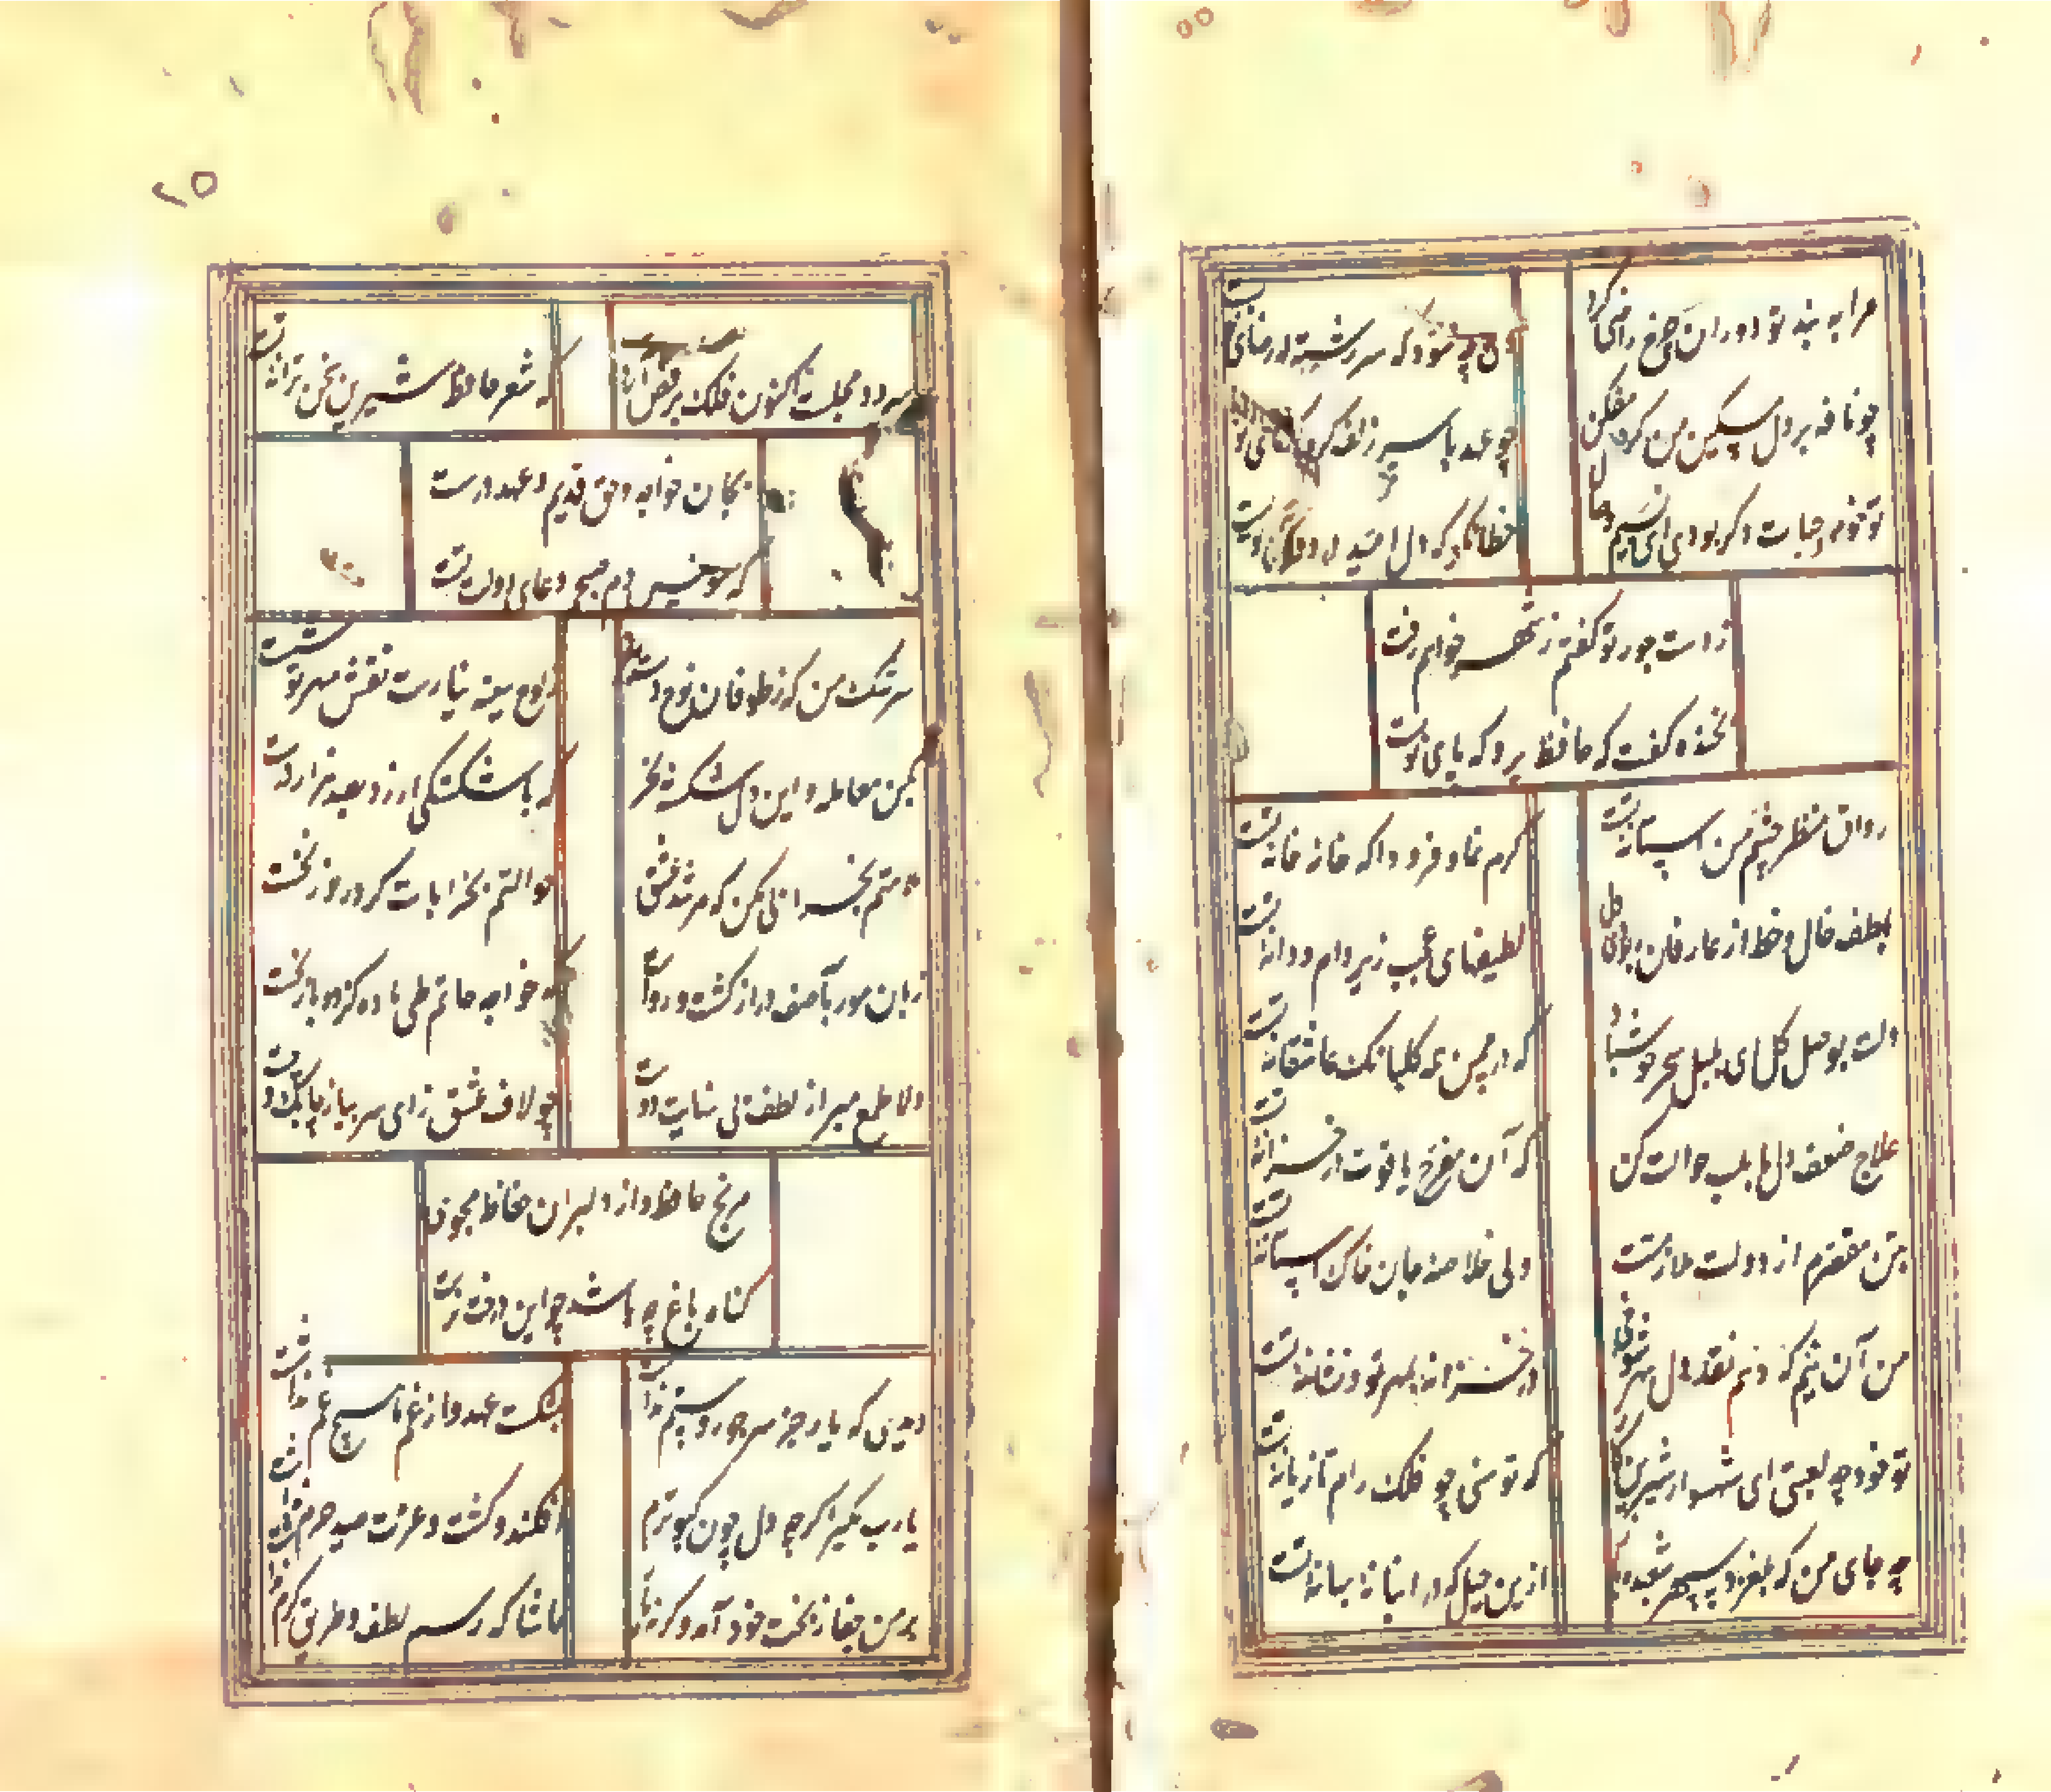 مرا به بند تو دوران چرخ راضی کرد
ولی چه سود که سررشته در رضای تو
چو نافه بر دل مسکین من گره مفکن
چو عهد با سر زلف گره گشای تو
تو خود حیات دگر بودی ای نسیم وصال
خطا نگر که دل امید در وفای تو بست
ز دست جور تو گفتم ز شهر خواهم رفت
بخنده گفت که حافظ برو که پای تو بست
رواق منظر چشم من آشیانه تست
کرم نما و فرود آ که خانه خانه تست
بلطف خال و خط از عارفان ربودی دل
لطیفهای عجب زیر دام و دانه تست
دلت بوصل گل ای بلبل سحر خوش باد
که در چمن همه گلبانگ عاشقانه تست
علاج ضعف دل ما بلب حوالت کن
که آن مفرح یاقوت در خزانه تست
بتن مقصرم از دولت ملازمتت
ولی خلاصه جان خاک آستانه تست
من آن نیم که دهم نقد دل بهر شوخی
در خزانه بمهر تو و نشانه تست
تو خود چه لعبتی ای شهسوار شیرین کار
که توسنی چو فلک رام تازیانه تست
چه جای من که بلغزد سپهر شعبده باز
ازین حیل که در انبانه بهانه تست
۲۵
سرود مجلست اکنون فلک برقص آرد
که شعر حافظ شیرین سخن ترانه تست
بجان خواجه و حق قدیم و عهد درست
که مونس دم صبحم دعای دولت تست
سرشک من که ز طوفان نوح دست برد
ز لوح سینه نیارست نقش مهر تو شست
بکن معامله و این دل شکسته بخر
که با شکستگی ارزد بصد هزار درست
ملامتم بخرابی مکن که مرشد عشق
حوالتم بخرابات کرد روز نخست
زبان مور بآصف دراز گشت و رواست
که خواجه خاتم جم یاوه کرد و باز نجست
دلا طمع مبر از لطف بی نهایت دوست
چو لاف عشق زدی سر بباز چابک و چست
مرنج حافظ و از دلبران حفاظ مجوی
گناه باغ چه باشد چو این درخت نرست
دیدی که یار جز سر جور و ستم نداشت
بشکست عهد و از غم ما هیچ غم نداشت
یارب مگیرش ار چه دل چون کبوترم
افکند و کشت و عزت صید حرم نداشت
بر من جفا ز بخت خود آمد وگرنه یار
حاشا که رسم لطف و طریق کرم نداشت